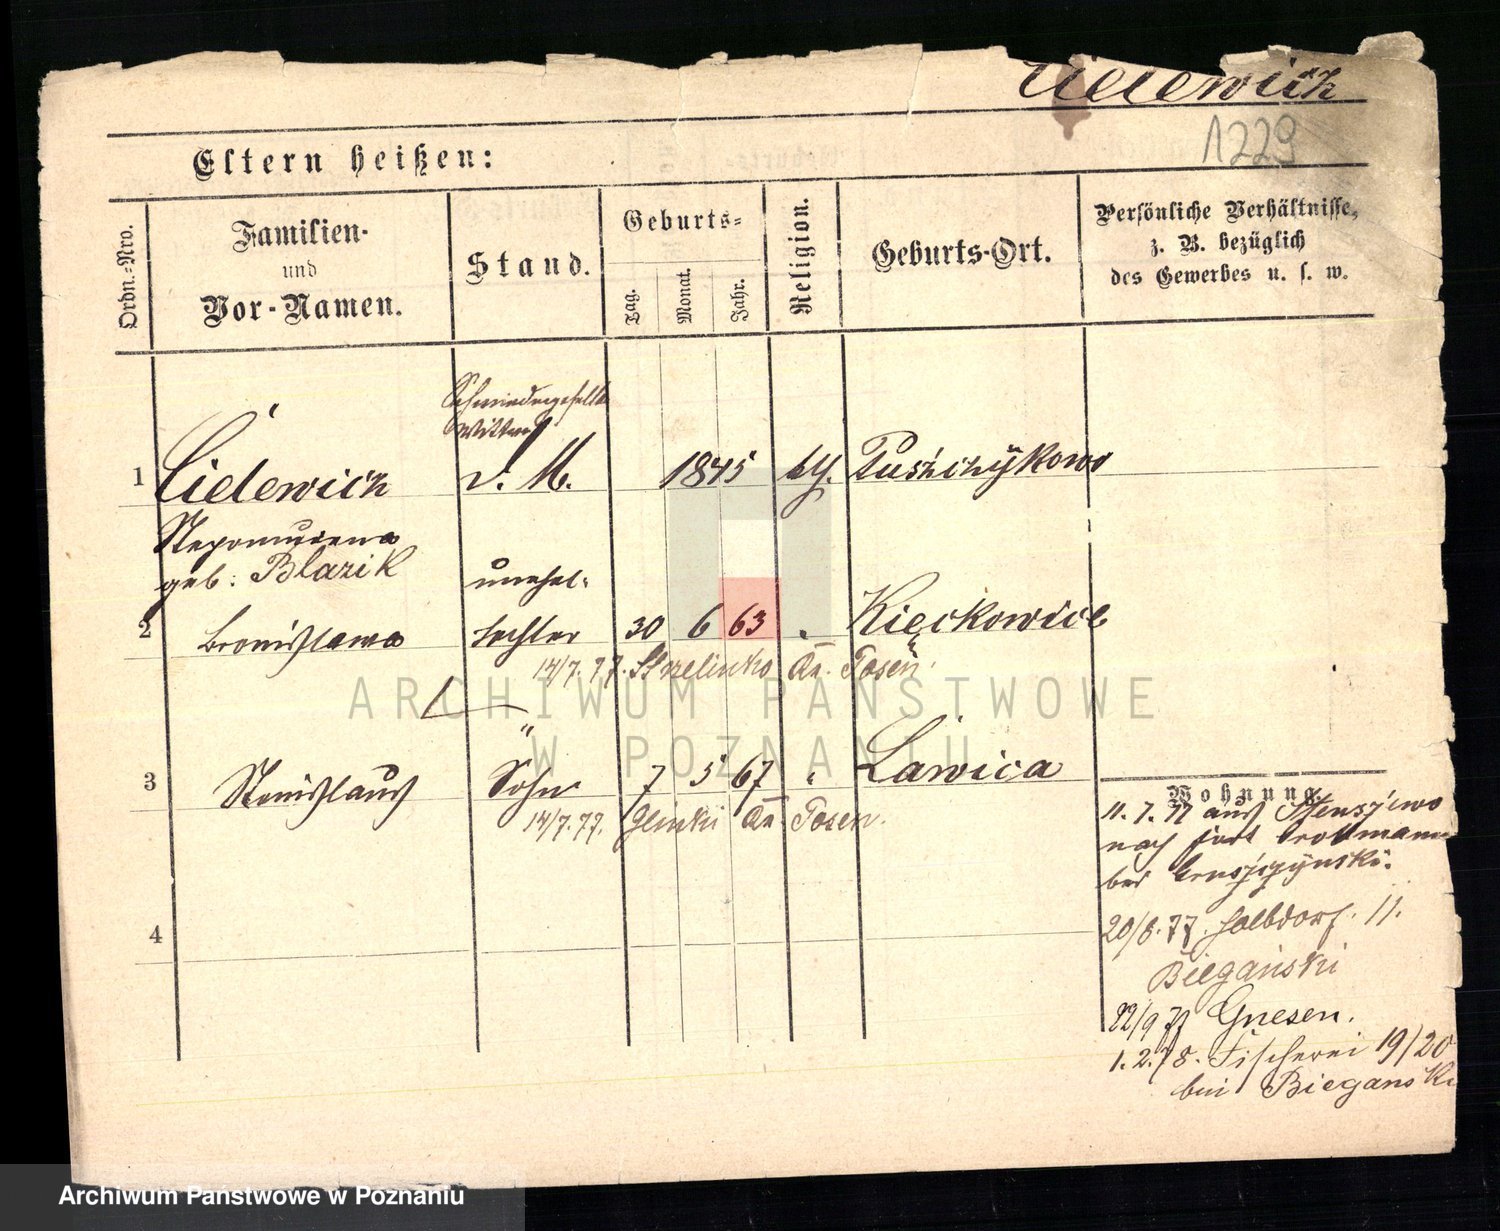 Cielewicz
1229
Eltern heißen:
Ordn.-Nro.
Familien-
und
Vor-Namen.
Stand.
Geburts-
Tag.
Monat.
Jahr.
Religion.
Geburts-Ort.
Persönliche Verhältnisse,
z. B. bezüglich
des Gewerbes u. s. w.
Schmiedegeselle
Wittwe
1 Cielewicz v. M. 1845 kth. Puszczykowo
Nepomucena
geb: Blazik unehel.
2 Bronislawa Tochter 30 6 63 " Kieckowice
14/7. 77. Strzelinko Kr. Posen.
"
3 Stanislaus Sohn 7 5 67 " Lawica
14/7. 77. Glinki Kr. Posen.
4
Wohnung.
11. 7. 77 aus Stenszewo
nach Fort Grollmann
bei
20/8. 77. Halbdorf. 11.
Biegański
22/9 77 Gnesen.
1. 2. 78. Fischerei 19/20
bei Biegański
ARCHIWUM PAŃSTWOWE
W POZNANIU
Archiwum Państwowe w Poznaniu